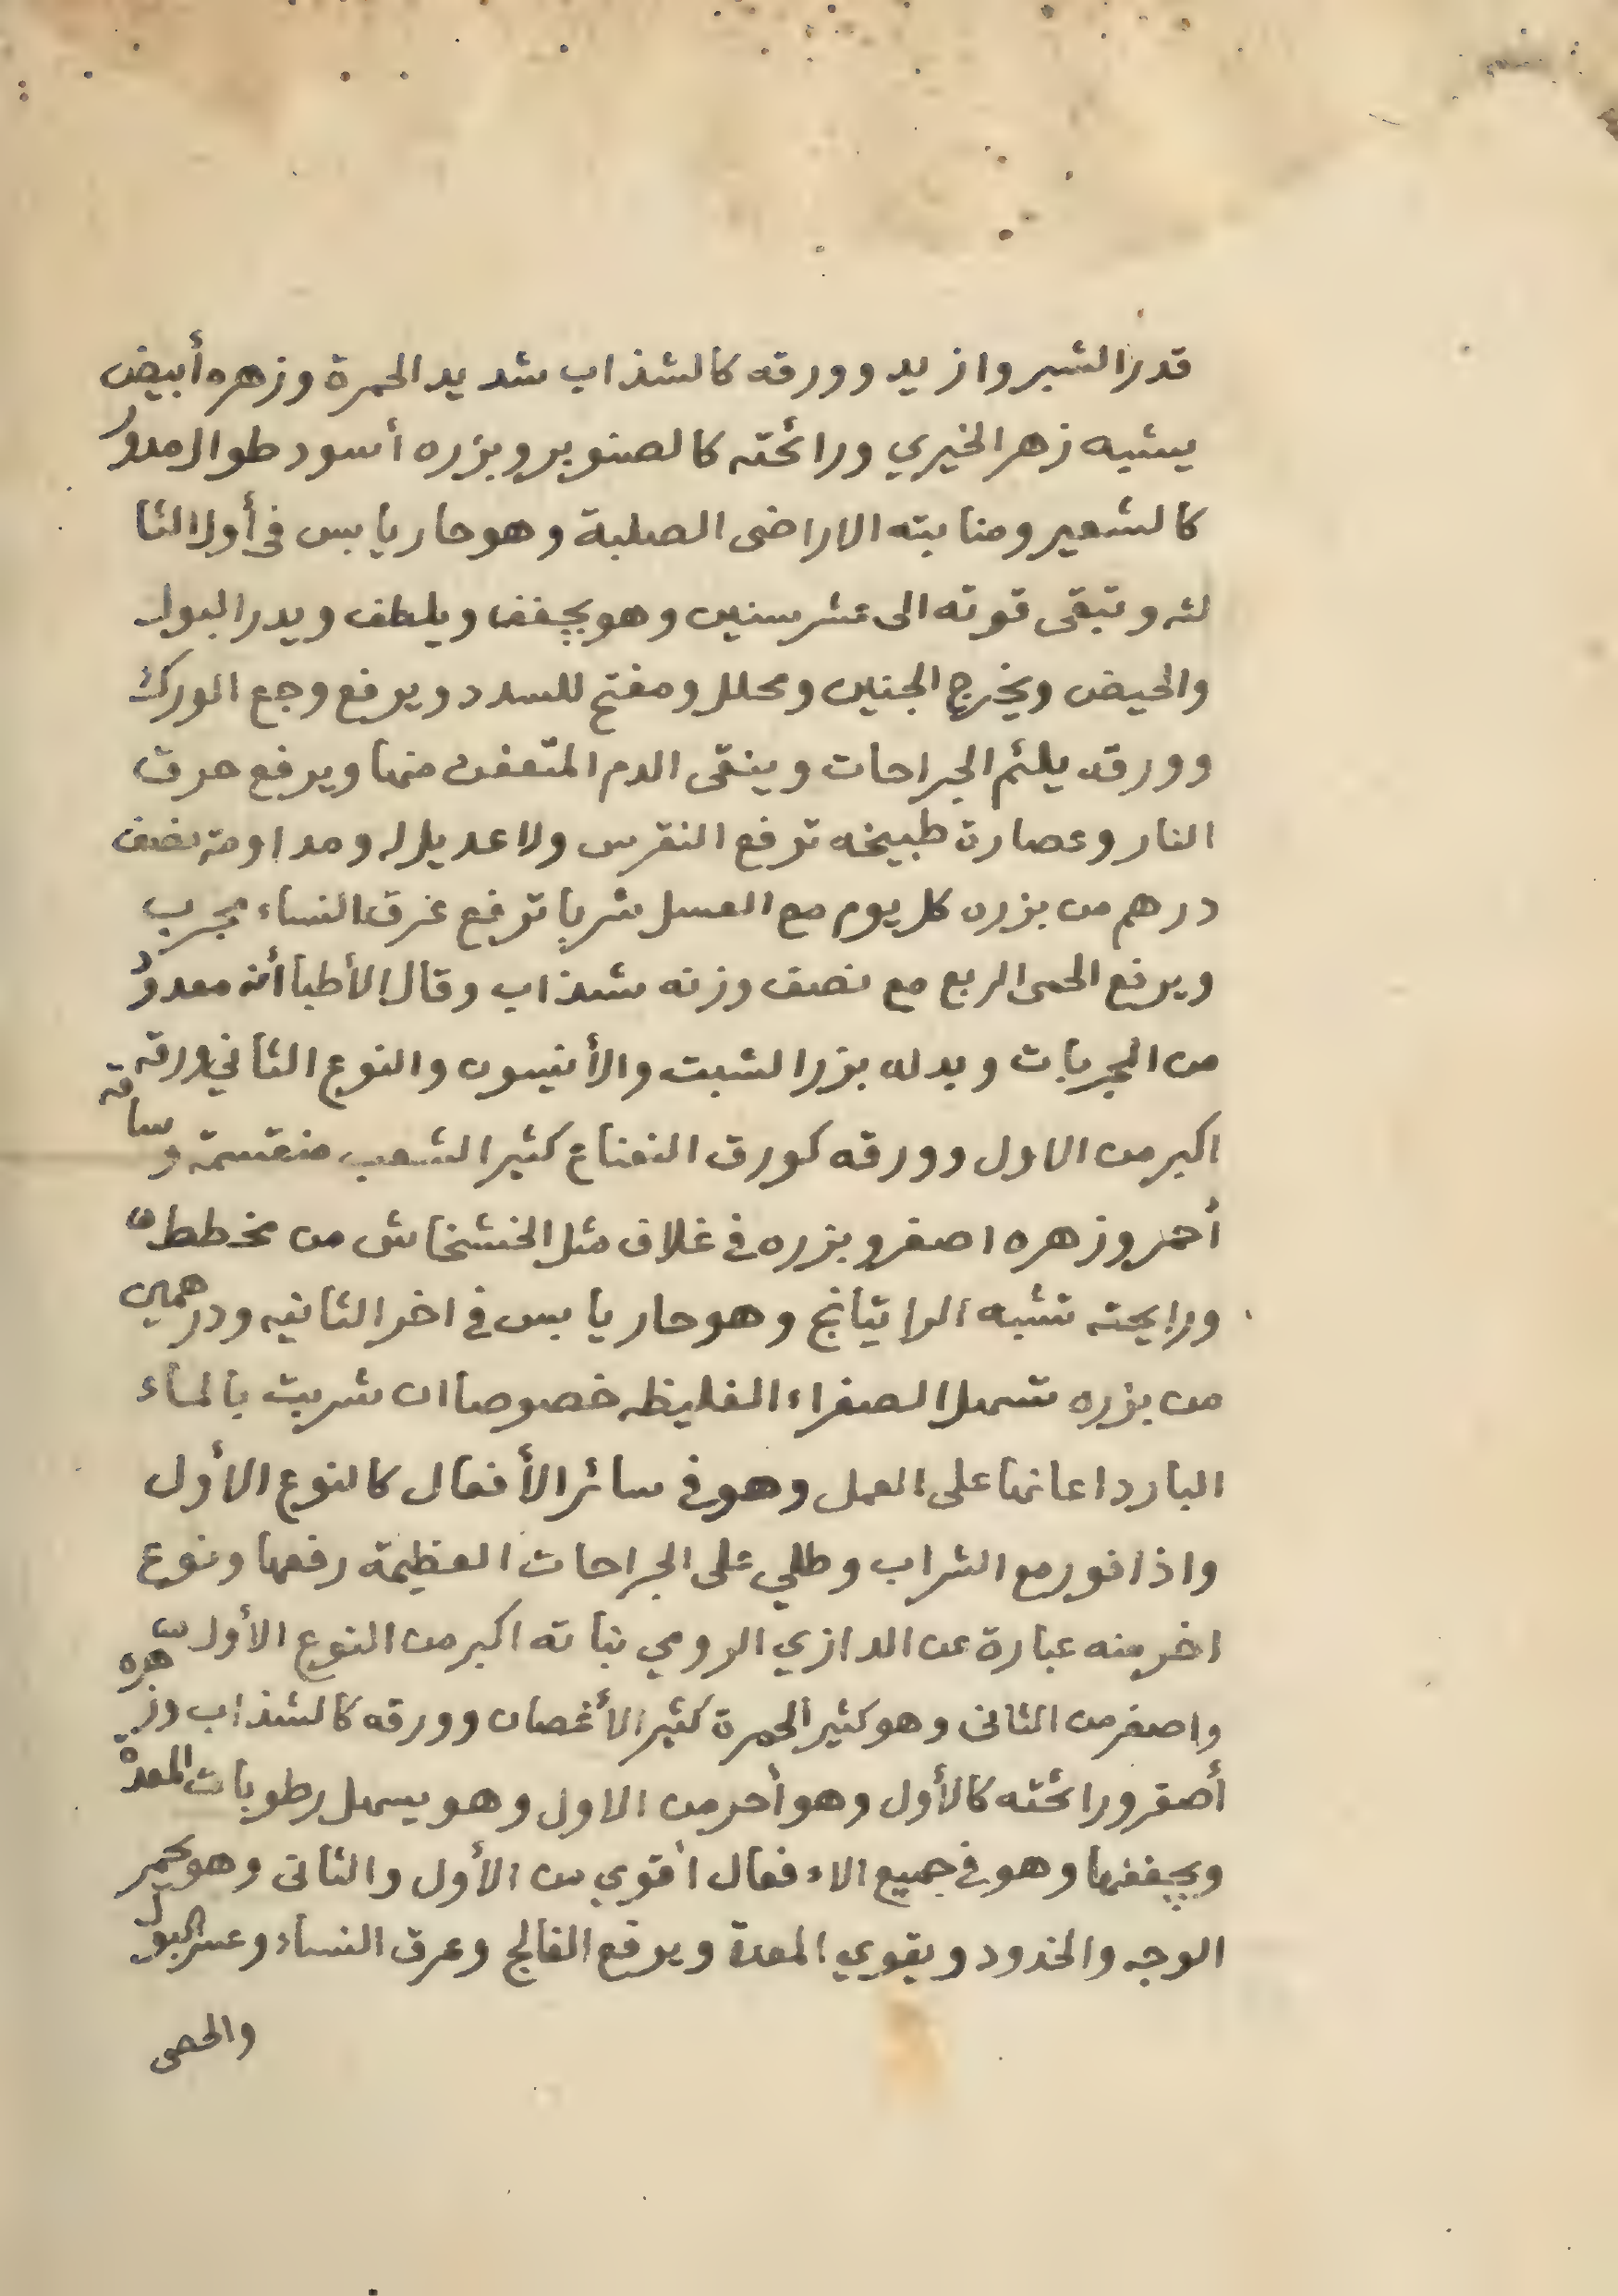 قدر الشبر وازيد وورقه كالشذاب شديد الحمرة وزهره أبيض
يشبه زهر الخيري ورائحته كالصنوبر وبزره أسود طوال مدور
كالشعير ومنابته الاراضى الصلبة وهو حار يابس في أول الثا
لثه وتبقى قوته الى عشر سنين وهو يجفف ويلطف ويدر البول
والحيض ويخرج الجنين ومحلل ومفتح للسدد ويرفع وجع الورك
وورقه يلئم الجراحات وينقى الدم المتعفن منها ويرفع حرق
النار وعصارة طبيخه ترفع النقرس ولا عديل له ومداومة نصف
درهم من بزره كل يوم مع العسل شربا ترفع عرق النساء مجرب
ويرفع الحمى الربع مع نصف وزنه شذاب وقال الأطبا أنه معدود
من المجربات وبدله بزر الشبت والأنيسون والنوع الثاني ورقه
اكبر من الاول وورقه كورق النعناع كثير الشعب منقسمة وساقه
أحمر وزهره اصفر وبزره في غلاف مثل الخشخاش من مخطط
ورايحته تشبه الراتيانج وهو حار يابس في اخر الثانيه ودرهمين
من بزره تسهل الصفراء الغليظه خصوصا ان شربت بالماء
البارد اعانها على العمل وهو في سائر الأفعال كالنوع الأول
واذا فور مع الشراب وطلي على الجراحات العظيمة رفعها ونوع
اخر منه عبارة عن الدازي الرومي نباته اكبر من النوع الأول
واصغر من الثانى وهو كثير الحمرة كثير الأغصان وورقه كالشذاب وزهره
أصفر ورائحته كالأول وهو أحر من الاول وهو يسهل رطوبات المعدة
ويجففها وهو في جميع الاءفعال أقوي من الأول والثانى وهو يحمر
الوجه والخدود ويقوي المعدة ويرفع الفالج وعرق النساء وعسر البول
والحصى